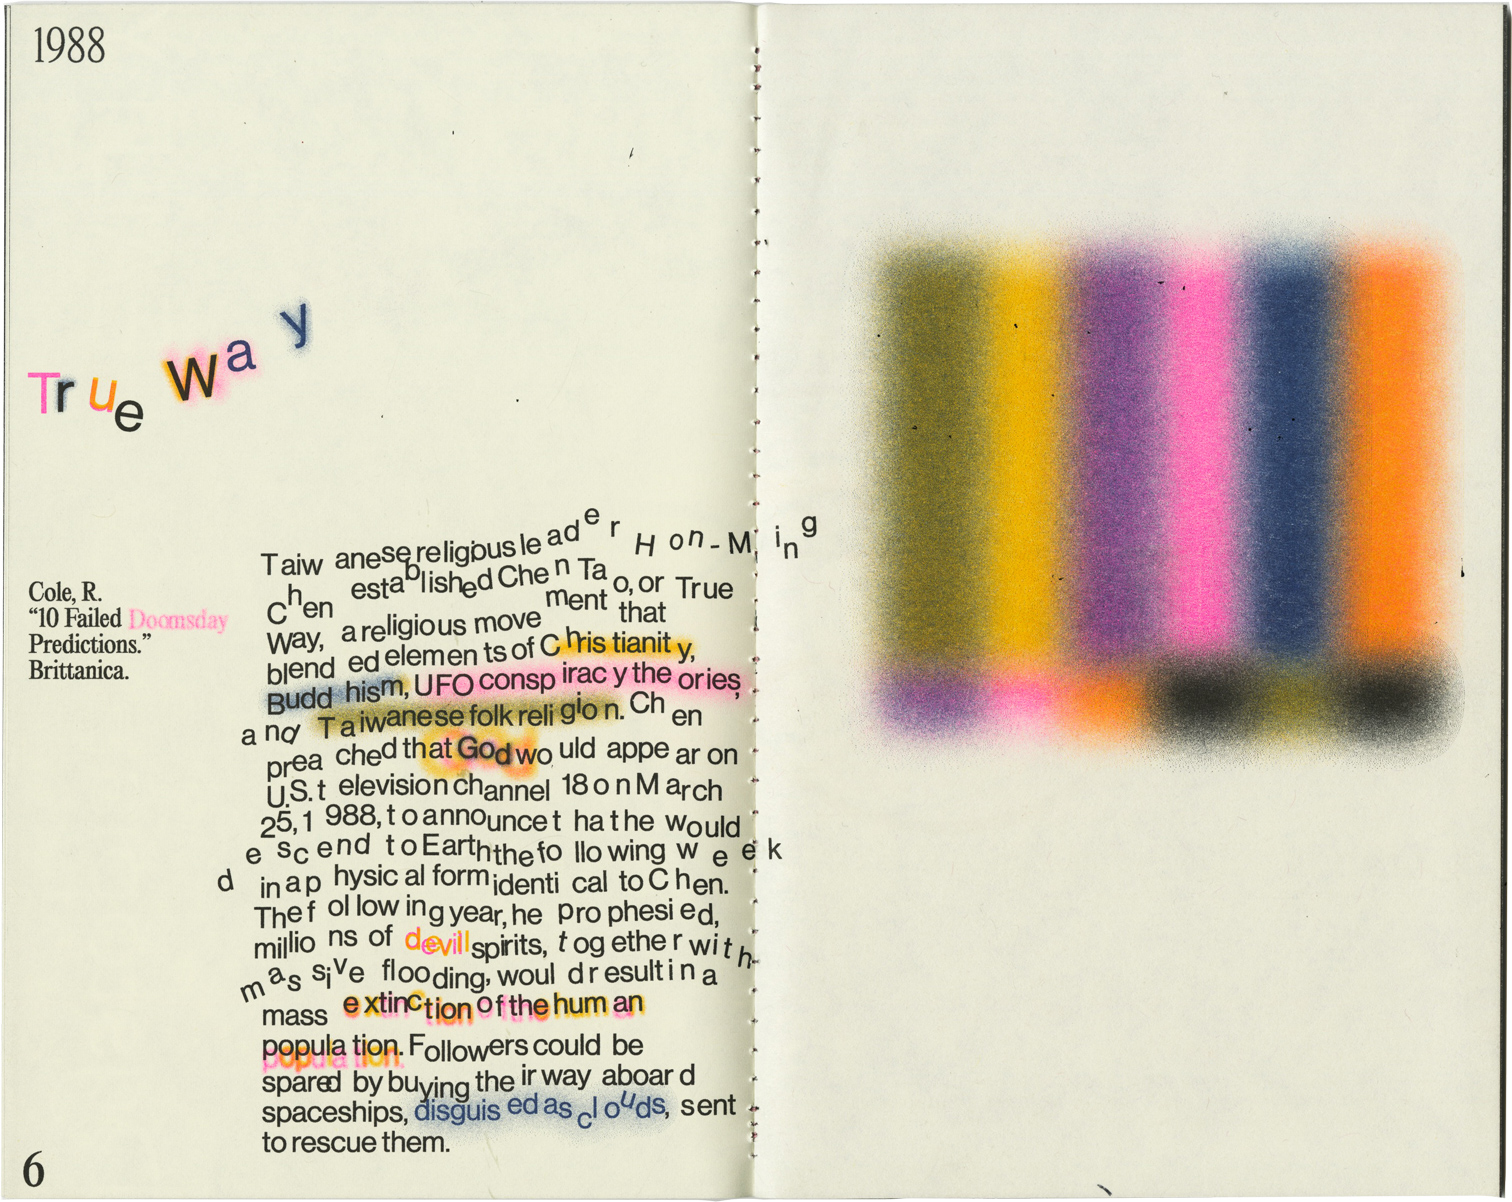 1988
True Way
Cole, R.
“10 Failed Doomsday
Predictions.”
Brittanica.
Taiwanese religious leader Hon-Ming
Chen established Chen Tao, or True
Way, a religious movement that
blended elements of Christianity,
Buddhism, UFO conspiracy theories,
and Taiwanese folk religion. Chen
preached that God would appear on
U.S. television channel 18 on March
25, 1988, to announce that he would
descend to Earth the following week
in a physical form identical to Chen.
The following year, he prophesied,
millions of devill spirits, together with
massive flooding, would result in a
mass extinction of the human
population. Followers could be
spared by buying their way aboard
spaceships, disguised as clouds, sent
to rescue them.
6